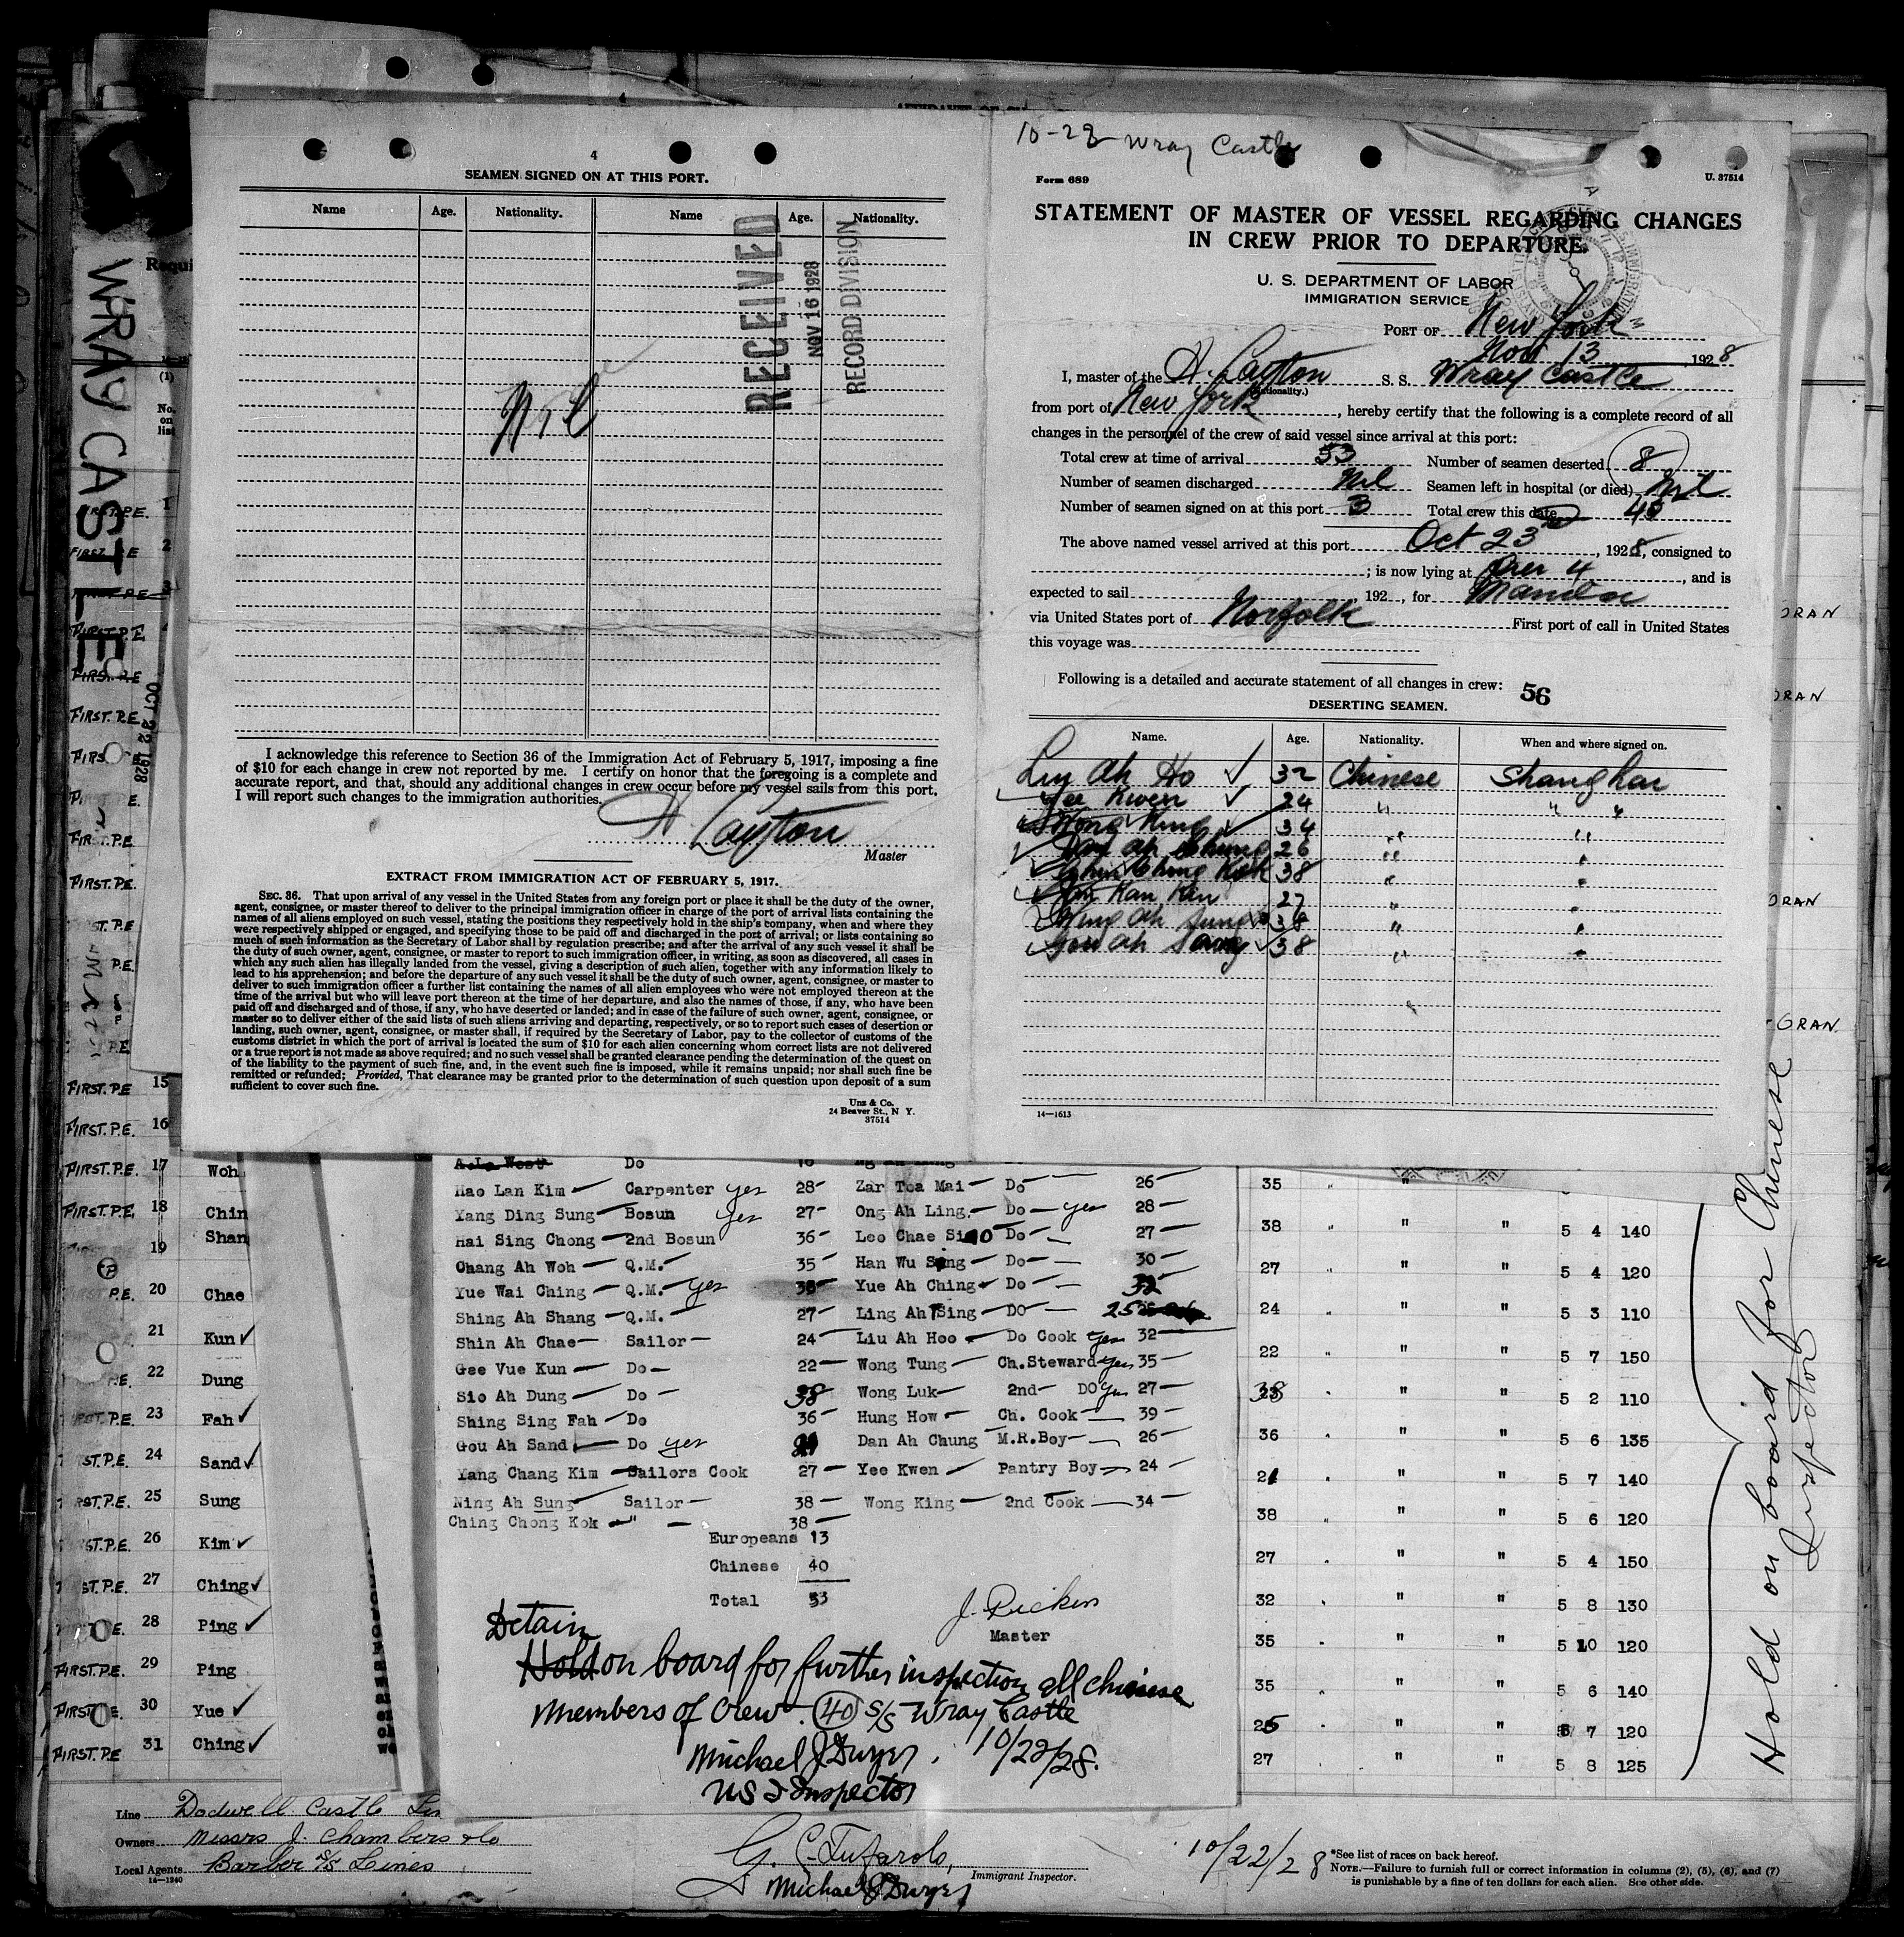 4
SEAMEN SIGNED ON AT THIS PORT.
Name Age. Nationality. Name Age. Nationality.
RECEIVED
NOV 16 1928
RECORD DIVISION
Nil
I acknowledge this reference to Section 36 of the Immigration Act of February 5, 1917, imposing a fine
of $10 for each change in crew not reported by me. I certify on honor that the foregoing is a complete and
accurate report, and that, should any additional changes in crew occur before my vessel sails from this port,
I will report such changes to the immigration authorities.
H. Layton
Master
EXTRACT FROM IMMIGRATION ACT OF FEBRUARY 5, 1917.
SEC. 36. That upon arrival of any vessel in the United States from any foreign port or place it shall be the duty of the owner,
agent, consignee, or master thereof to deliver to the principal immigration officer in charge of the port of arrival lists containing the
names of all aliens employed on such vessel, stating the positions they respectively hold in the ship's company, when and where they
were respectively shipped or engaged, and specifying those to be paid off and discharged in the port of arrival; or lists containing so
much of such information as the Secretary of Labor shall by regulation prescribe; and after the arrival of any such vessel it shall be
the duty of such owner, agent, consignee, or master to report to such immigration officer, in writing, as soon as discovered, all cases in
which any such alien has illegally landed from the vessel, giving a description of such alien, together with any information likely to
lead to his apprehension; and before the departure of any such vessel it shall be the duty of such owner, agent, consignee, or master to
deliver to such immigration officer a further list containing the names of all alien employees who were not employed thereon at the
time of the arrival but who will leave port thereon at the time of her departure, and also the names of those, if any, who have been
paid off and discharged and of those, if any, who have deserted or landed; and in case of the failure of such owner, agent, consignee, or
master so to deliver either of the said lists of such aliens arriving and departing, respectively, or so to report such cases of desertion or
landing, such owner, agent, consignee, or master shall, if required by the Secretary of Labor, pay to the collector of customs of the
customs district in which the port of arrival is located the sum of $10 for each alien concerning whom correct lists are not delivered
or a true report is not made as above required; and no such vessel shall be granted clearance pending the determination of the quest on
of the liability to the payment of such fine, and, in the event such fine is imposed, while it remains unpaid; nor shall such fine be
remitted or refunded: Provided, That clearance may be granted prior to the determination of such question upon deposit of a sum
sufficient to cover such fine.
Unz & Co.
24 Beaver St., N Y.
37514
10-23 Wray Castle
Form 689 U. 37514
STATEMENT OF MASTER OF VESSEL REGARDING CHANGES
IN CREW PRIOR TO DEPARTURE.
U. S. DEPARTMENT OF LABOR
IMMIGRATION SERVICE
PORT OF New York
Nov 13, 1928
I, master of the H. Layton S. S. Wray Castle
(Nationality.)
from port of New York, hereby certify that the following is a complete record of all
changes in the personnel of the crew of said vessel since arrival at this port:
Total crew at time of arrival 53 Number of seamen deserted 8
Number of seamen discharged Nil Seamen left in hospital (or died) Nil
Number of seamen signed on at this port 3 Total crew this date 45
The above named vessel arrived at this port Oct 23rd, 1928, consigned to
; is now lying at Pier 4, and is
expected to sail 192 , for Manila
via United States port of Norfolk First port of call in United States
this voyage was
Following is a detailed and accurate statement of all changes in crew: 56
DESERTING SEAMEN.
Name. Age. Nationality. When and where signed on.
Liu Ah Ho 32 Chinese Shanghai
Yee Kwen 24 " " "
Wong King 34 " "
Dan Ah Chung 26 " "
Ching Chong Kok 38 " "
Kan Kim 27 " "
Ning Ah Sung 38 " "
Gou Ah Sang 38 " "
14—1613
WRAY CASTLE
OCT 22 1928
Requi
(1)
No.
on
list
FIRST.P.E. 1
FIRST.P.E 2
FIRST.P.E 3
FIRST.P.E
FIRST.P.E
FIRST.P.E
FIRST.P.E
FIRST.P.E.
FIRST.P.E 15
FIRST.P.E. 16
FIRST.P.E. 17 Woh
FIRST.P.E. 18 Chin
19 Shan
P.E. 20 Chae
21 Kun
P.E. 22 Dung
FIRST.P.E. 23 Fah
FIRST.P.E. 24 Sand
FIRST.P.E. 25 Sung
FIRST.P.E. 26 Kim
FIRST.P.E. 27 Ching
28 Ping
FIRST.P.E. 29 Ping
FIRST 30 Yue
FIRST.P.E 31 Ching
A.L. West Do
Hao Lan Kim Carpenter yes 28 Zar Toa Mai Do 26
Yang Ding Sung Bosun yes 27 Ong Ah Ling Do yes 28
Hai Sing Chong 2nd Bosun 36 Leo Chae Siao Do 27
Chang Ah Woh Q.M. 35 Han Wu Sing Do 30
Yue Wai Ching Q.M. yes 38 Yue Ah Ching Do 32
Shing Ah Shang Q.M. 27 Ling Ah Sing DO 25
Shin Ah Chae Sailor 24 Liu Ah Hoo Do Cook yes 32
Gee Vue Kun Do 22 Wong Tung Ch.Steward yes 35
Sio Ah Dung Do 38 Wong Luk 2nd DO yes 27
Shing Sing Fah Do 36 Hung How Ch. Cook 39
Gou Ah Sand Do yes 21 Dan Ah Chung M.R.Boy 26
Yang Chang Kim Sailors Cook 27 Yee Kwen Pantry Boy 24
Ning Ah Sung Sailor 38 Wong King 2nd Cook 34
Ching Chong Kok " 38
Europeans 13
Chinese 40
Total 53
J. Ricken
Master
Detain
Hold on board for further inspection all Chinese
members of Crew. 40 S/S Wray Castle
Michael J Dwyer. 10/22/28.
US I Inspector
35 " "
38 " " " 5 4 140
27 " " " 5 4 120
24 " " " 5 3 110
22 " " " 5 7 150
38 " " " 5 2 110
36 " " " 5 6 135
21 " " " 5 7 140
38 " " " 5 6 120
27 " " " 5 4 150
32 " " " 5 8 130
35 " " " 5 10 120
35 " " " 5 6 140
25 " " " 5 7 120
27 " " " 5 8 125
ORAN
ORAN
ORAN
GRAN
Hold on board for Chinese
Inspector
Line Dodwell Castle Lin
Owners Messrs J. Chambers & Co
Local Agents Barber S/S Lines
14—1240
G. C. Tufarolo,
Immigrant Inspector.
Michael J Dwyer
10/22/28
*See list of races on back hereof.
NOTE.—Failure to furnish full or correct information in columns (2), (5), (6), and (7)
is punishable by a fine of ten dollars for each alien. See other side.